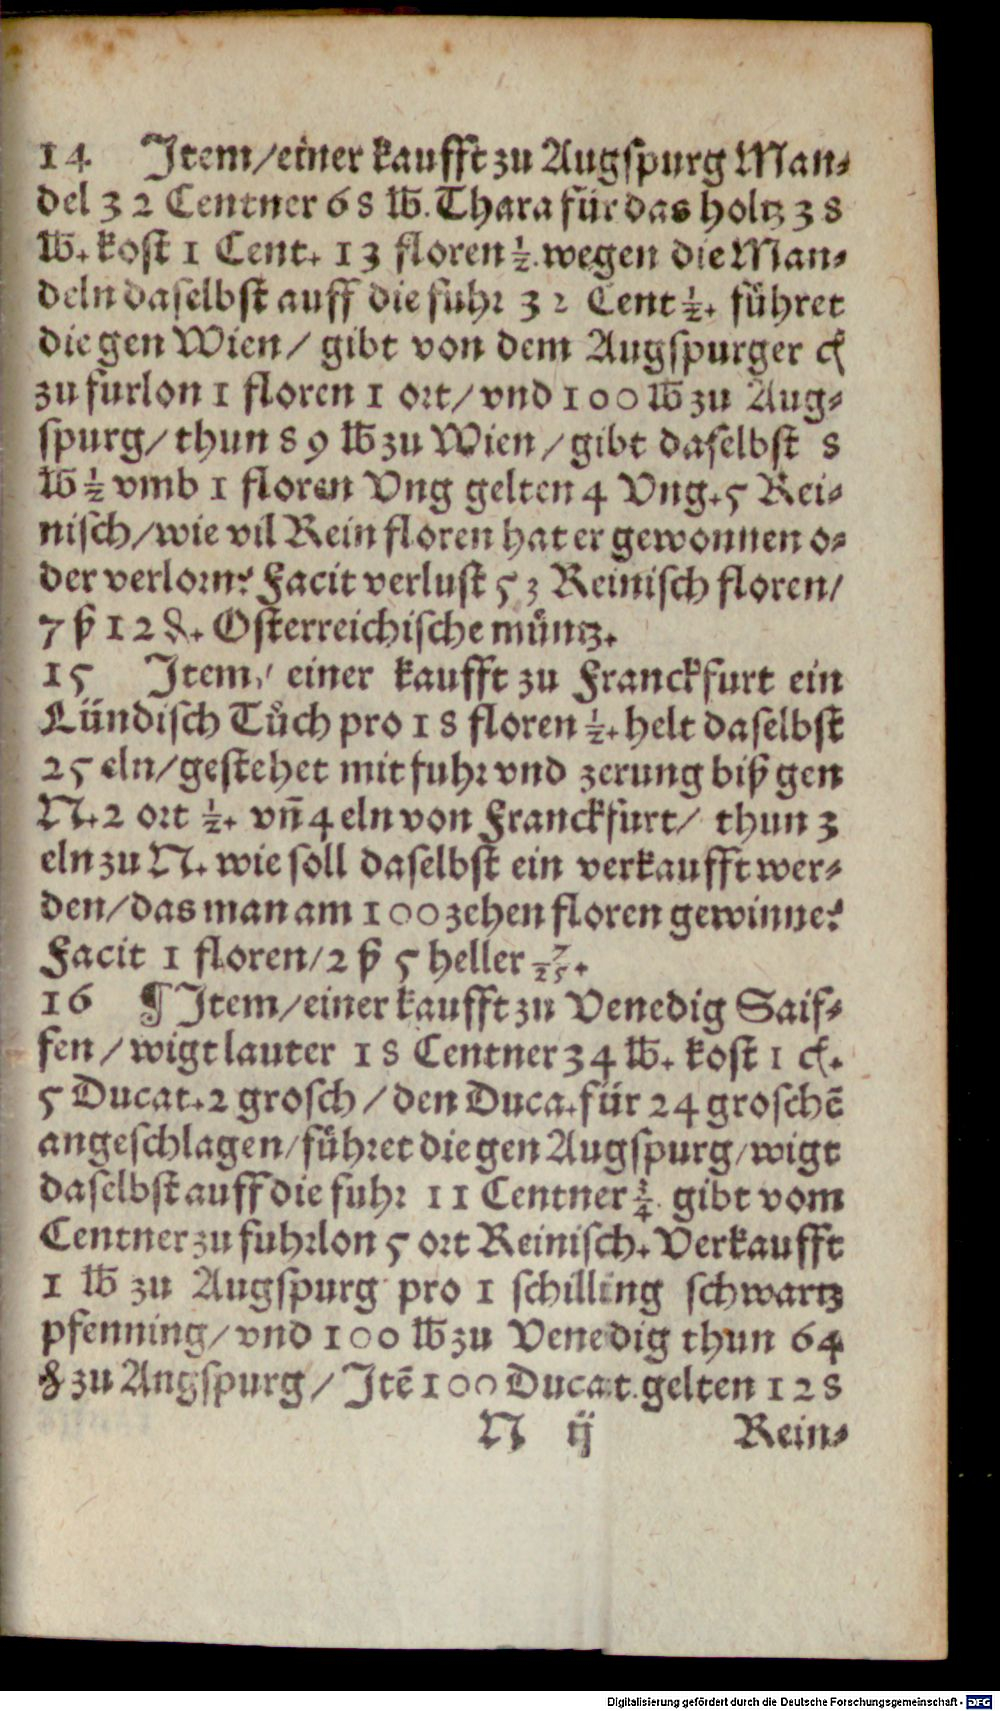 14 Item/einer kaufft zu Augspurg Man⸗
del 32 Centner 68 ℔. Thara für das holtz 38
℔. kost 1 Cent. 13 floren ½. wegen die Man⸗
deln daselbst auff die fuhr 32 Cent ½. führet
die gen Wien/ gibt von dem Augspurger
zu furlon 1 floren 1 ort/ vnd 100 ℔ zu Aug⸗
spurg/ thun 89 ℔ zu Wien/ gibt daselbst 8
℔ ½ vmb 1 floren Vng gelten 4 Vng. 5 Rei⸗
nisch/wie vil Rein floren hat er gewonnen o⸗
der verlorn? Facit verlust 53 Reinisch floren/
7 ß 12 ₰. Osterreichische müntz.
15 Item/ einer kaufft zu Franckfurt ein
Lündisch Tůch pro 18 floren ½. helt daselbst
25 eln/gestehet mit fuhr vnd zerung biß gen
N. 2 ort ½. vñ 4 eln von Franckfurt/ thun 3
eln zu N. wie soll daselbst ein verkaufft wer⸗
den/das man am 100 zehen floren gewinne?
Facit 1 floren/2 ß 5 heller 7/25.
16 ¶ Item/einer kaufft zu Venedig Saif⸗
fen/wigt lauter 18 Centner 34 ℔. kost 1
5 Ducat. 2 grosch/den Duca. für 24 groschē
angeschlagen/führet die gen Augspurg/wigt
daselbst auff die fuhr 11 Centner ¾. gibt vom
Centner zu fuhrlon 5 ort Reinisch. Verkaufft
1 ℔ zu Augspurg pro 1 schilling schwartz
pfenning/vnd 100 ℔ zu Venedig thun 64
zu Augspurg/ Itē 100 Ducat. gelten 128
N ij Rein⸗
Digitalisierung gefördert durch die Deutsche Forschungsgemeinschaft - DFG